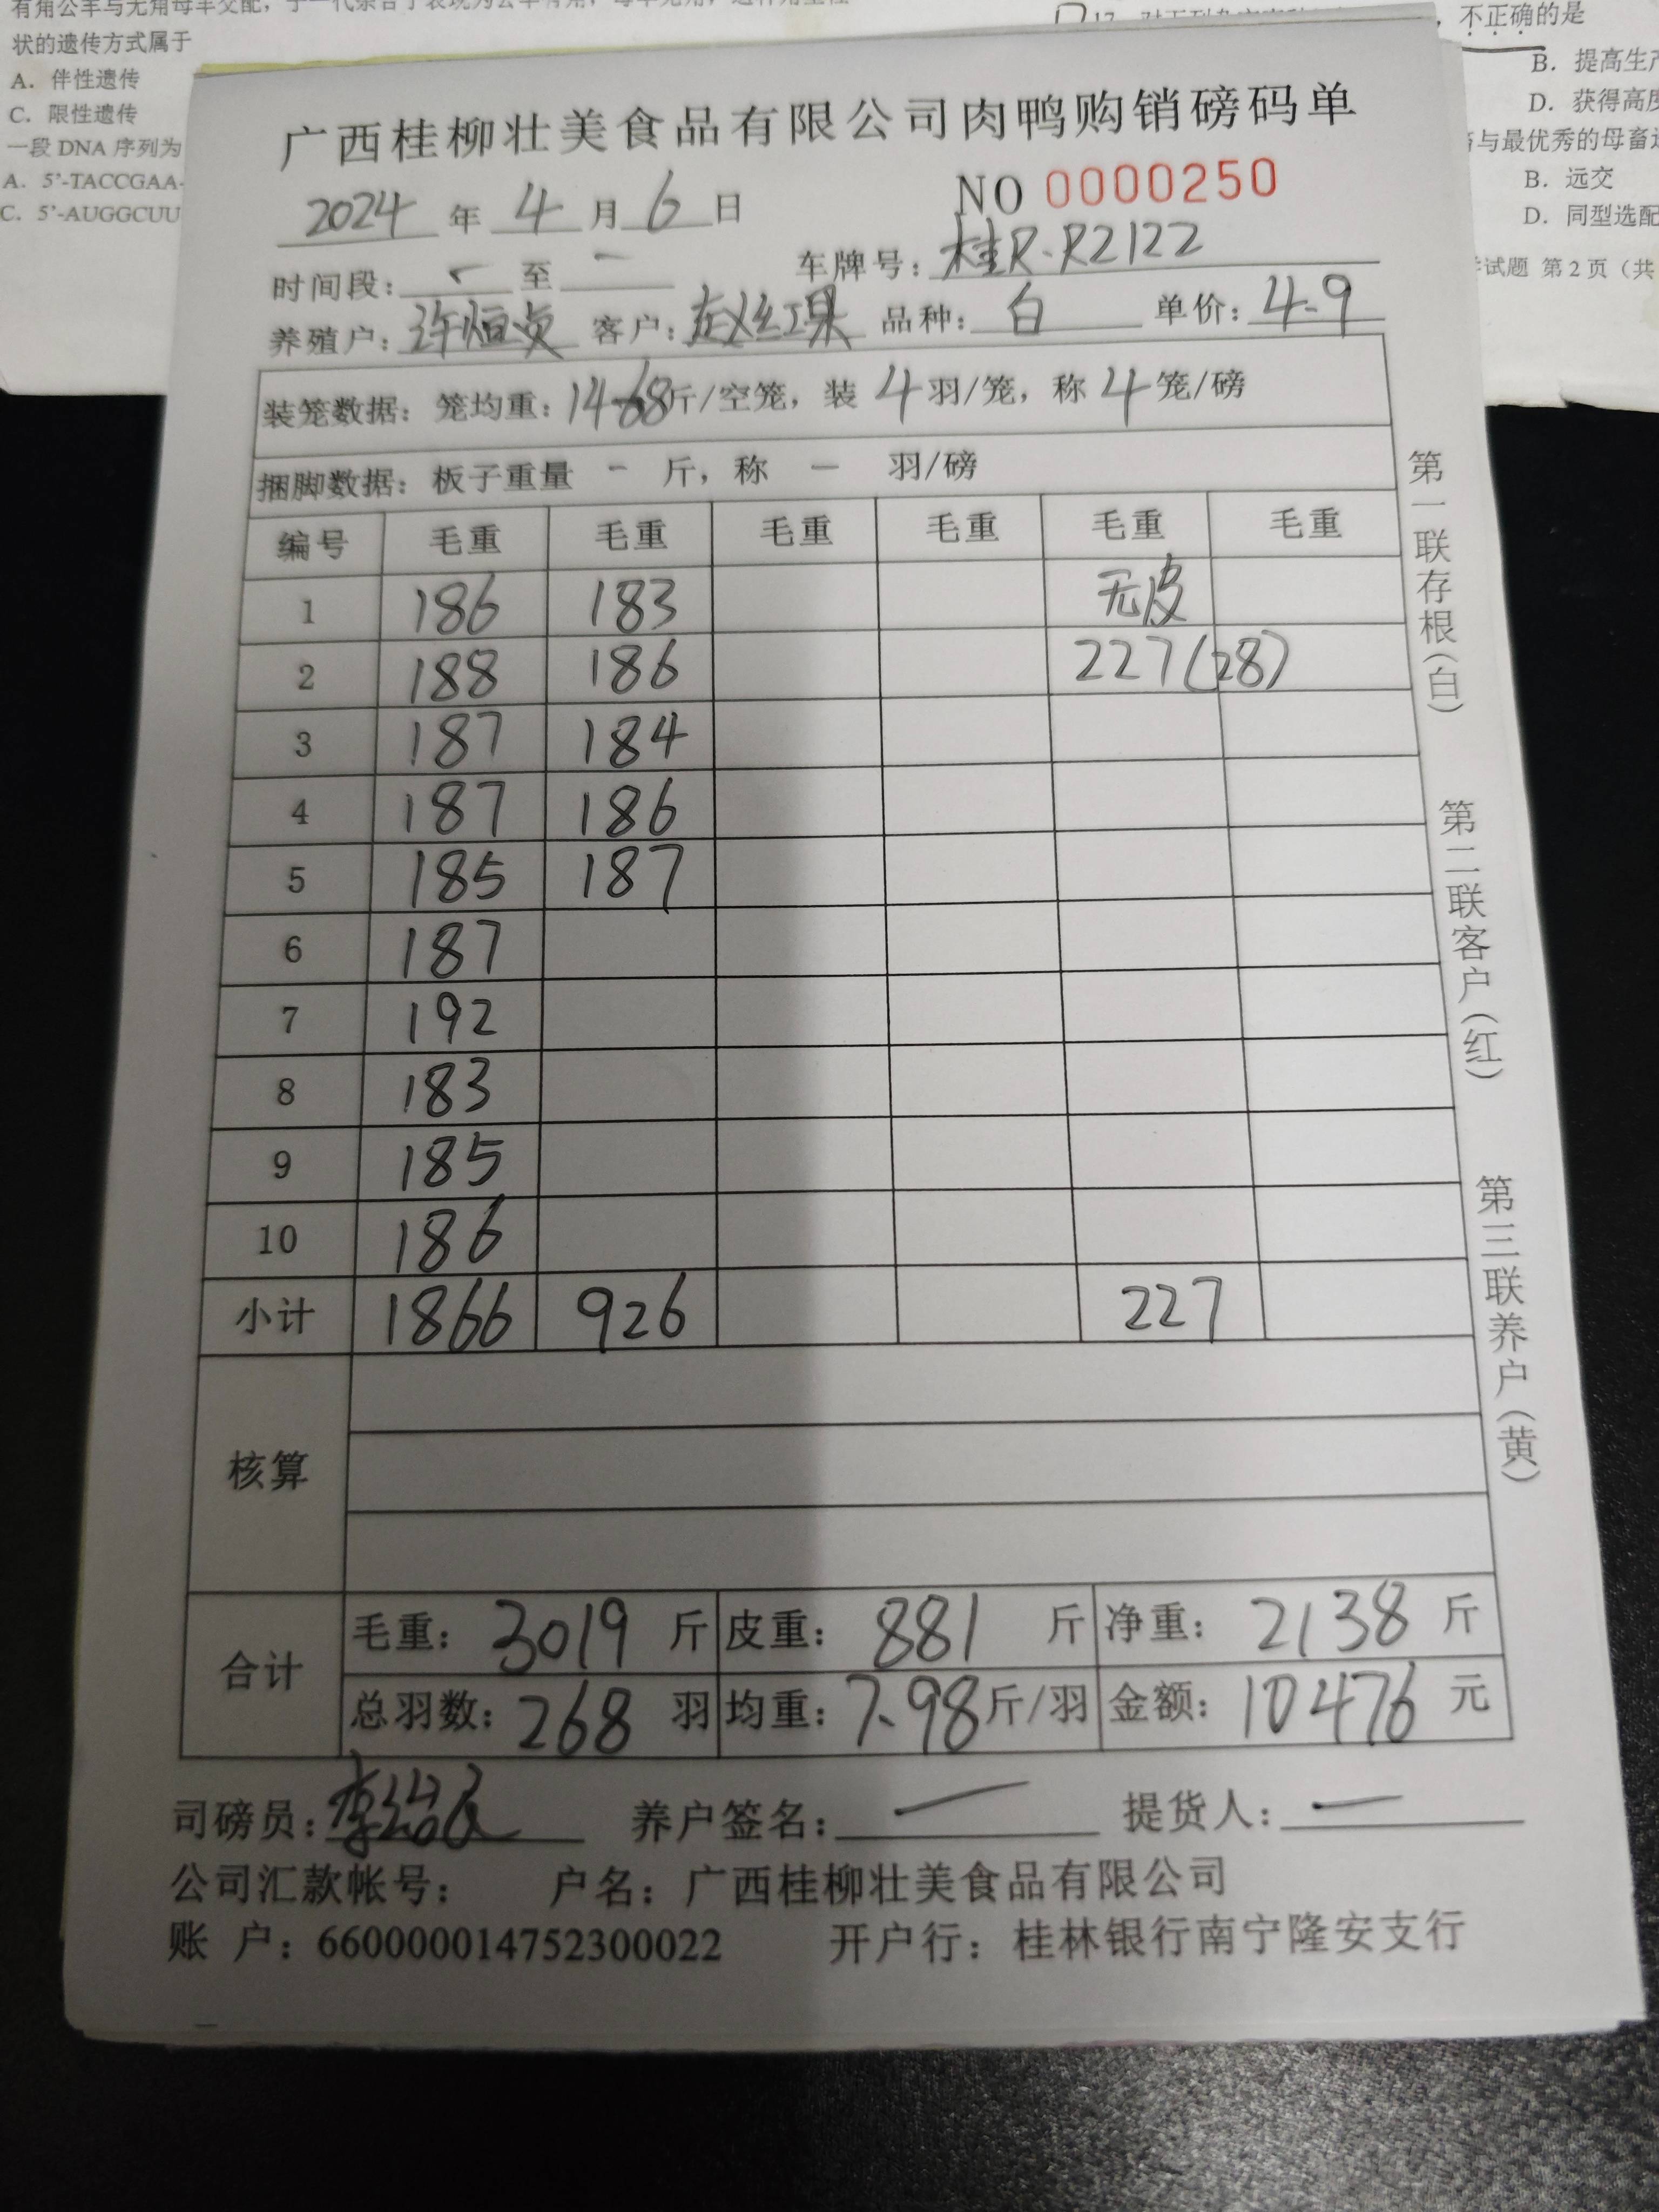 状的遗传方式属于
A. 伴性遗传
C. 限性遗传
一段 DNA 序列为
A. 5'-TACCGAA-
C. 5'-AUGGCUU
，不正确的是
B. 提高生产
D. 获得高度
与最优秀的母畜
B. 远交
D. 同型选配
试题 第 2 页（共
广西桂柳壮美食品有限公司肉鸭购销磅码单
NO 0000250
2024 年 4 月 6 日
时间段: - 至 - 车牌号: 桂R·R2122
养殖户: 许恒贞 客户: 赵红果 品种: 白 单价: 4.9
装笼数据: 笼均重: 14.68斤/空笼, 装 4 羽/笼, 称 4 笼/磅
捆脚数据: 板子重量 - 斤, 称 - 羽/磅
编号 毛重 毛重 毛重 毛重 毛重 毛重
1 186 183 无皮
2 188 186 227(28)
3 187 184
4 187 186
5 185 187
6 187
7 192
8 183
9 185
10 186
小计 1866 926 227
核算
合计
毛重: 3019 斤 皮重: 881 斤 净重: 2138 斤
总羽数: 268 羽 均重: 7.98斤/羽 金额: 10476 元
司磅员: 养户签名: — 提货人: —
公司汇款帐号: 户名: 广西桂柳壮美食品有限公司
账 户: 660000014752300022 开户行: 桂林银行南宁隆安支行
第一联存根(白)
第二联客户(红)
第三联养户(黄)